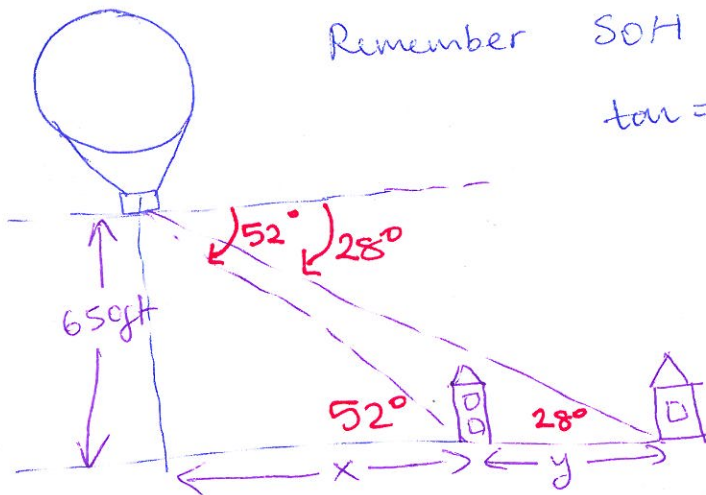 Remember SOH
tan =
52°
28°
650ft
52°
28°
x
y